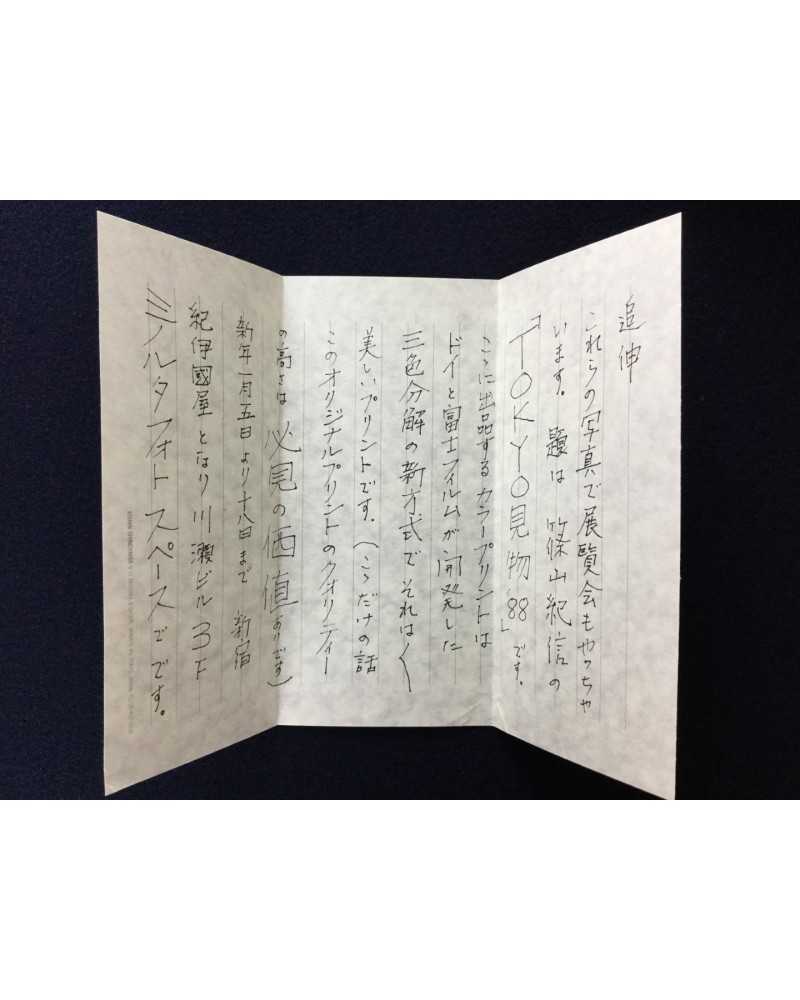 追伸
これらの写真で展覧会もやっちゃ
います。題は 篠山紀信の
「TOKYO見物88」です。
こゝに出品するカラープリントは
ドイと富士フイルムが開発した
三色分解の新方式でそれは〱
美しいプリントです。(こゝだけの話
このオリジナルプリントのクオリティー
の高さは 必見の価値ありです)
新年一月五日より十八日まで 新宿
紀伊國屋となり川瀬ビル3F
ミノルタフォトスペースでです。